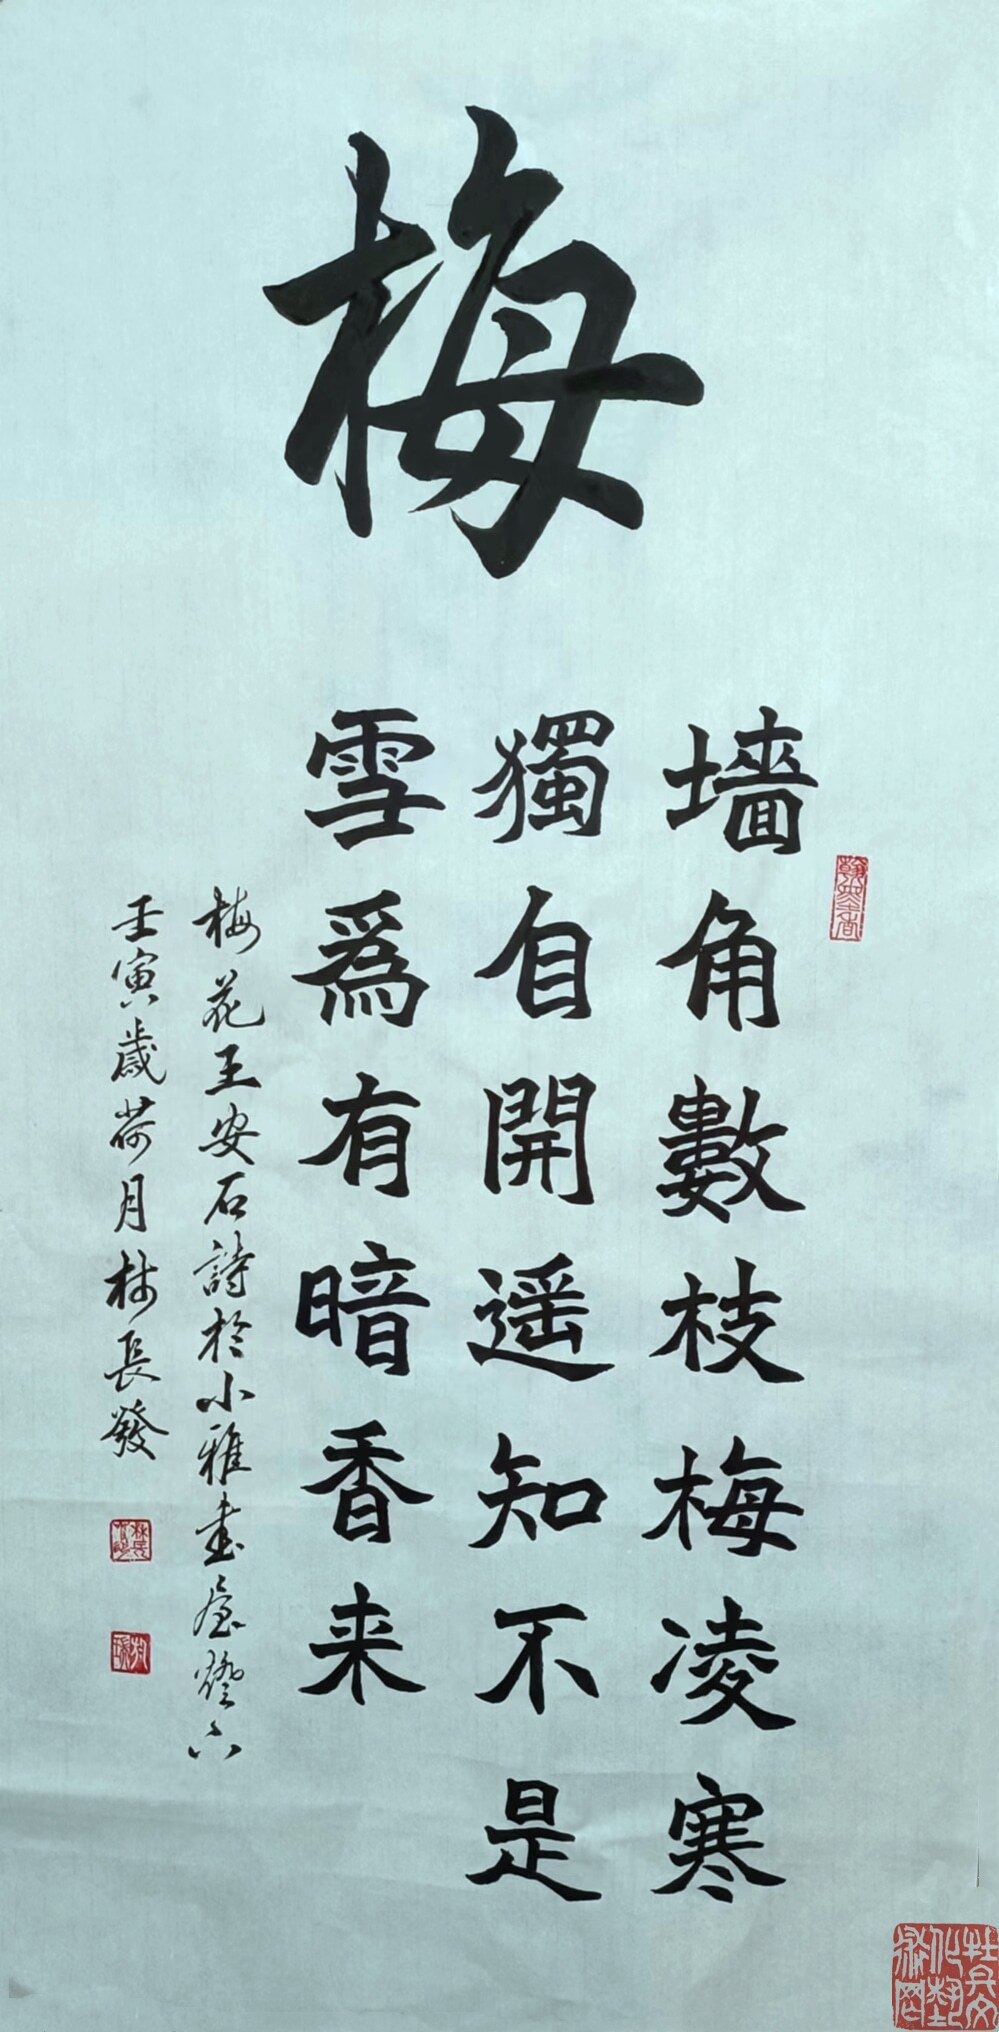 梅
墙角數枝梅凌寒
獨自開遥知不是
雪爲有暗香来
梅花王安石詩於小雅書屋燈下
壬寅歲荷月林長發